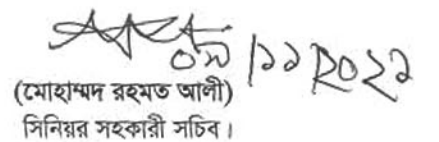 ০৯/১১/২০২১
(মোহাম্মদ রহমত আলী)
সিনিয়র সহকারী সচিব।